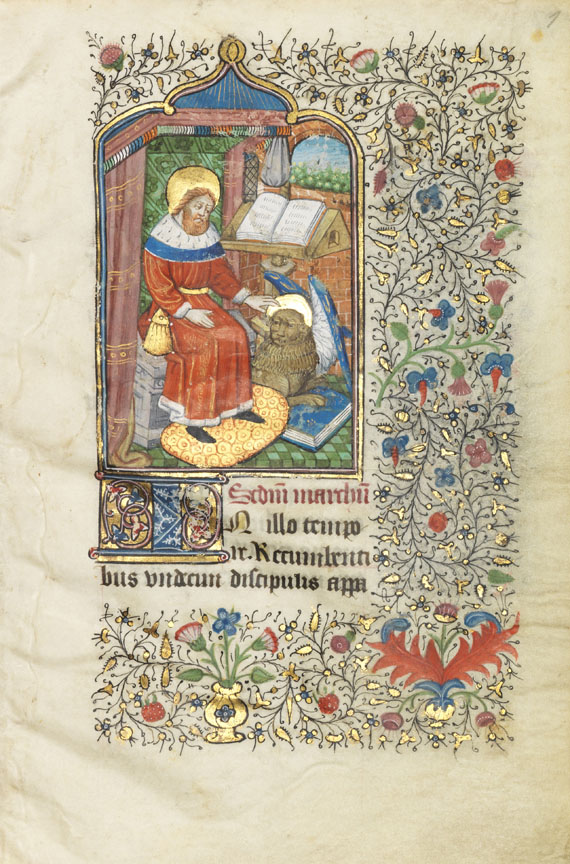 Secdm̄ marchū
IN illo tempo
re. Recumbenti
bus vndecim discipulis appa